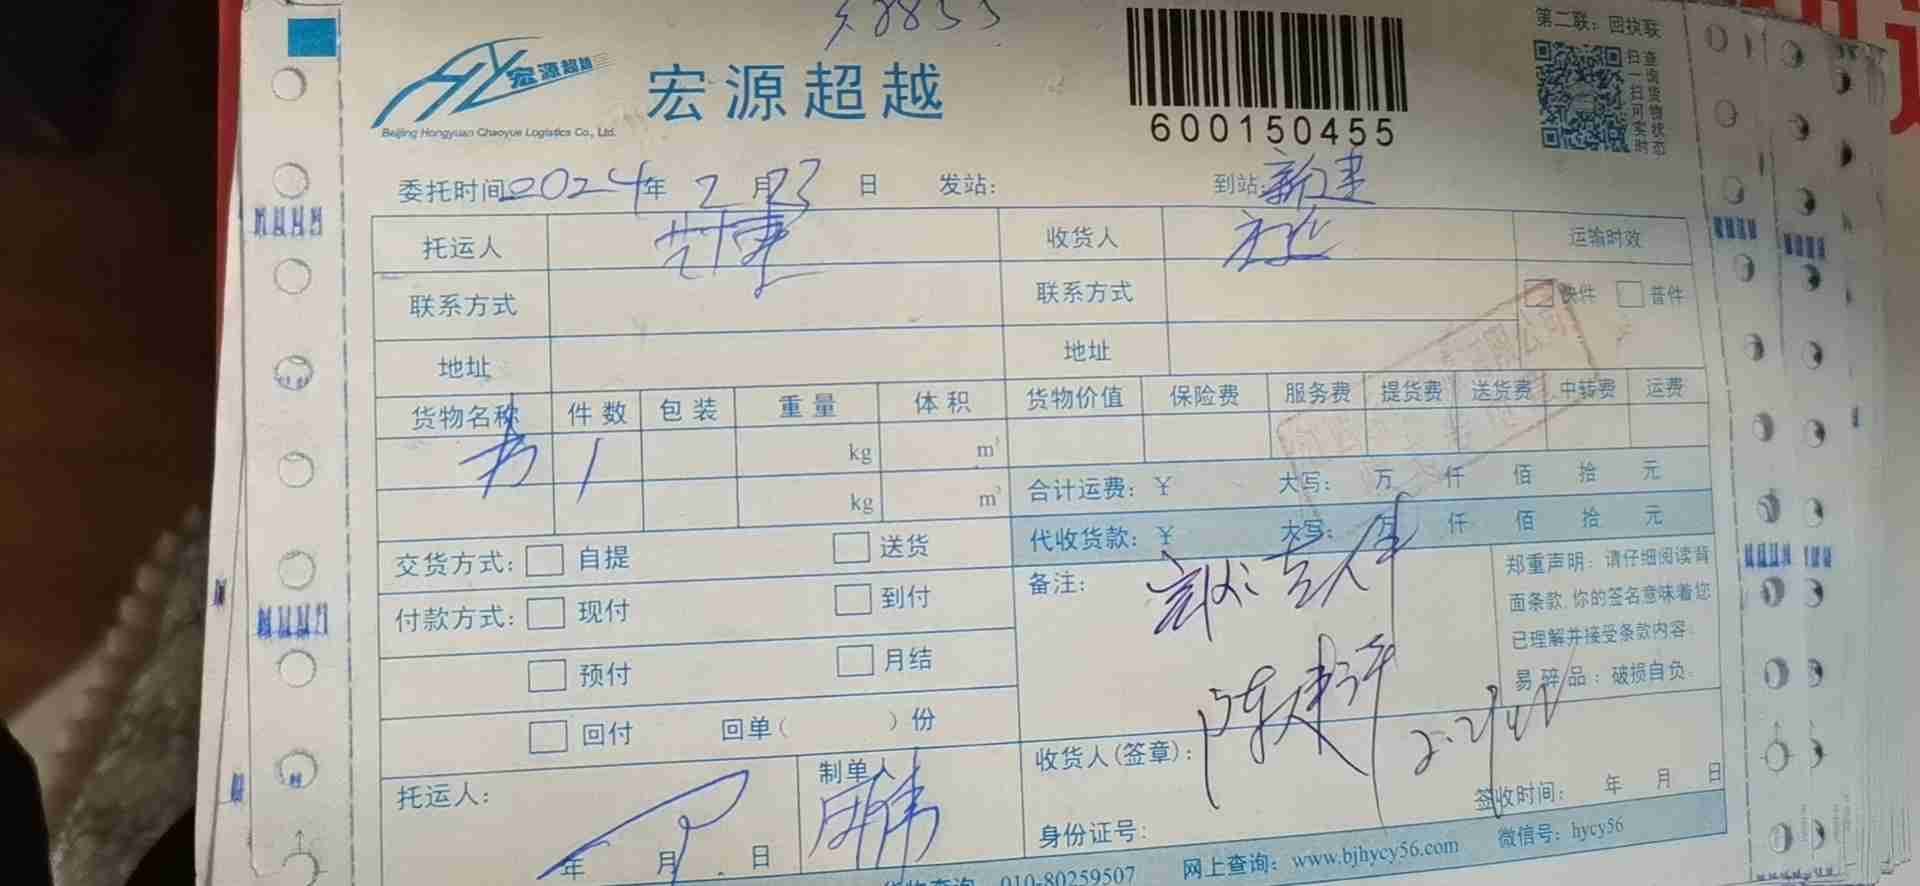 第二联：回执联
扫一扫可实时
查询货物状态
宏源超越
Beijing Hongyuan Chaoyue Logistics Co., Ltd.
宏源超越
600150455
委托时间 2024年 2月23日 发站： 到站：新建
托运人 收货人 运输时效
联系方式 联系方式 快件 普件
地址 地址
货物名称 件数 包装 重量 体积 货物价值 保险费 服务费 提货费 送货费 中转费 运费
书 1 kg m³
kg m³ 合计运费：￥ 大写： 万 仟 佰 拾 元
代收货款：￥ 大写： 万 仟 佰 拾 元
交货方式： 自提 送货
付款方式： 现付 到付
预付 月结
回付 回单（ ）份
备注：
郑重声明：请仔细阅读背
面条款，你的签名意味着您
已理解并接受条款内容。
易碎品：破损自负。
托运人： 制单人
年 月 日
收货人(签章)：
签收时间： 年 月 日
身份证号：
010-80259507 网上查询：www.bjhycy56.com 微信号：hycy56